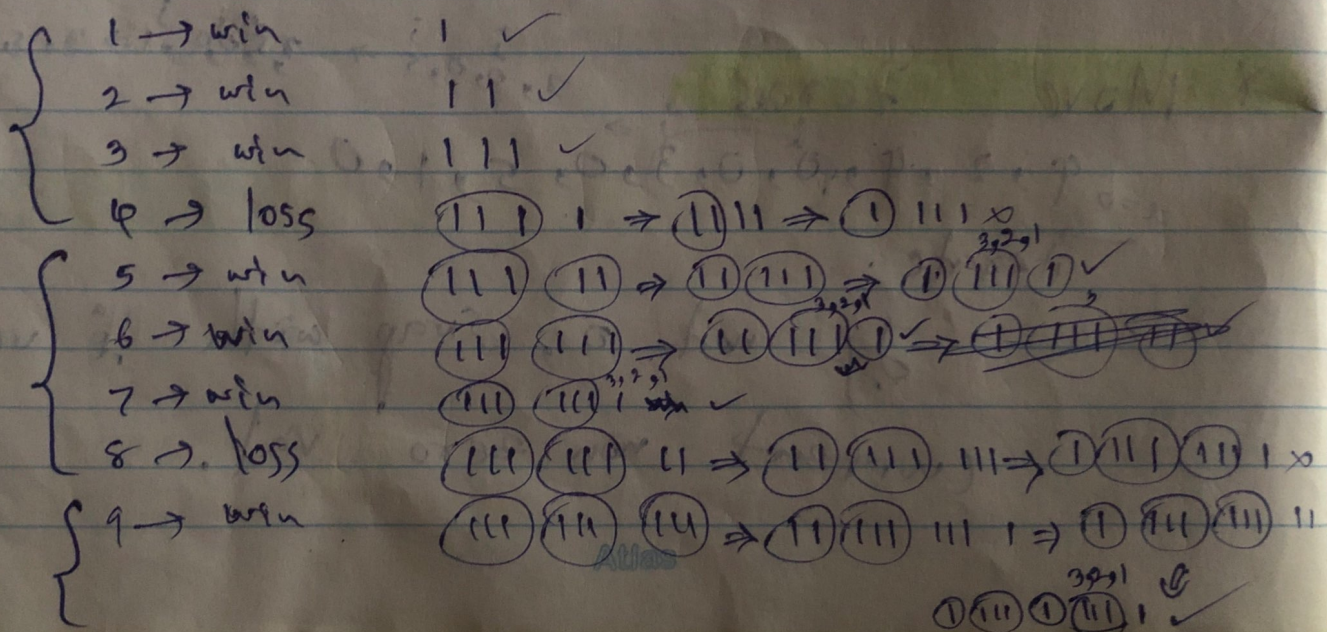 1 → win 1 ✓
2 → win 11 ✓
3 → win 111 ✓
4 → loss 111 1 ⇒ 11 11 ⇒ 1 111 ×
3,2,1
5 → win 111 11 ⇒ 11 111 ⇒ 1 111 1 ✓
3,2,1
6 → win 111 111 ⇒ 11 111 1 ✓ ⇒
3,2,1
7 → win 111 111 1 ✓
8 → loss 111 111 11 ⇒ 11 111 111 ⇒ 1 111 111 1 ×
9 → win 111 111 111 ⇒ 11 111 111 1 ⇒ 1 111 111 11
Atlas
3,2,1
1 111 1 111 1 ✓